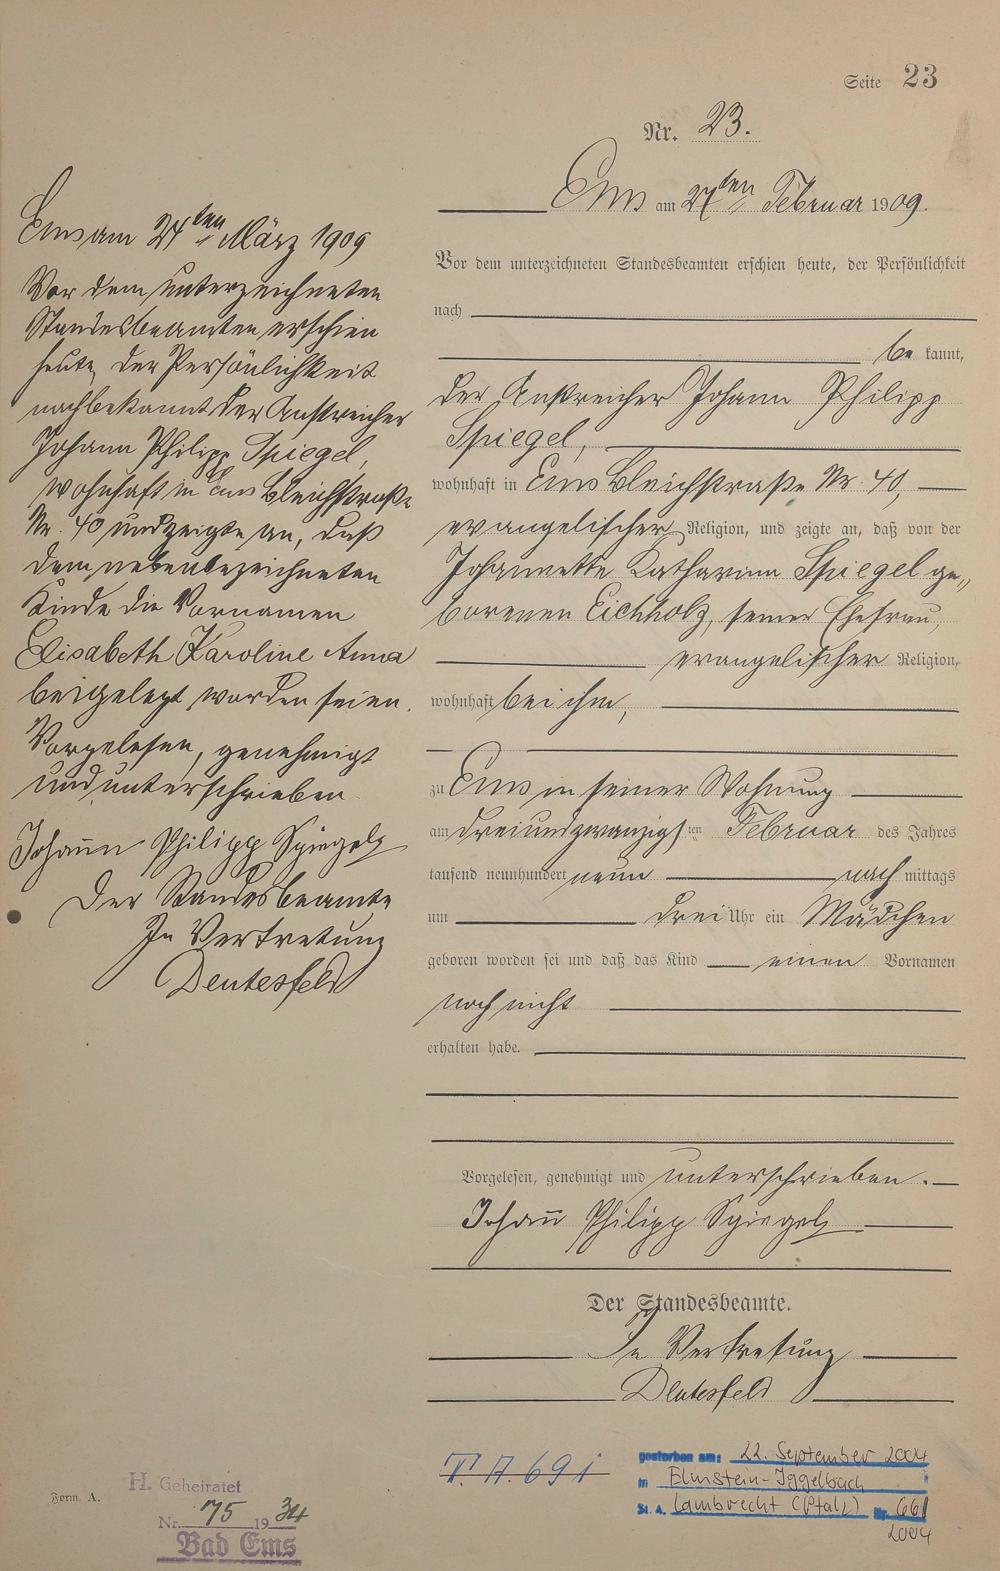 Seite 23
Nr. 23.
Ems am 27ten Februar 1909.
Vor dem unterzeichneten Standesbeamten erschien heute, der Persönlichkeit
nach
be kannt,
der Anstreicher Johann Philipp
Spiegel,
wohnhaft in Ems Bleichstraße Nr. 40,
evangelischer Religion, und zeigte an, daß von der
Johannette Katharina Spiegel ge„
borenen Eichholz, seiner Ehefrau,
evangelischer Religion,
wohnhaft bei ihm,
zu Ems in seiner Wohnung
am dreiundzwanzigsten Februar des Jahres
tausend neunhundert neun nach mittags
um drei Uhr ein Mädchen
geboren worden sei und daß das Kind einen Vornamen
noch nicht
erhalten habe.
Vorgelesen, genehmigt und unterschrieben.
Johann Philipp Spiegel
Der Standesbeamte.
In Vertretung
Deutesfeld
Ems am 24ten März 1909
Vor dem unterzeichneten
Standesbeamten erschien
heute, der Persönlichkeit
nach bekannt der Anstreicher
Johann Philipp Spiegel,
wohnhaft in Ems Bleichstraße
Nr. 40 und zeigte an, daß
dem nebenbezeichneten
Kinde die Vornamen
Elisabeth Karoline Anna
beigelegt worden seien.
Vorgelesen, genehmigt
und unterschrieben.
Johann Philipp Spiegel
Der Standesbeamte
In Vertretung
Deutesfeld
T. A. 691
gestorben am: 22. September 2004
in Elmstein-Iggelbach
St. A. Lambrecht (Pfalz) Nr. 661
2004
H. Geheiratet
Nr. 75 1934
Bad Ems
Form. A.